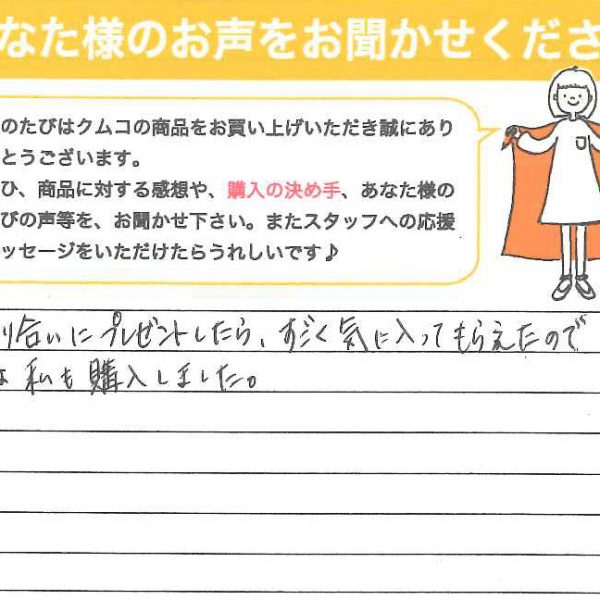 なた様のお声をお聞かせくださ
のたびはクムコの商品をお買い上げいただき誠にあり
とうございます。
ひ、商品に対する感想や、購入の決め手、あなた様の
びの声等を、お聞かせ下さい。またスタッフへの応援
ッセージをいただけたらうれしいです♪
り合いにプレゼントしたら、すごく気に入ってもらえたので
私も購入しました。